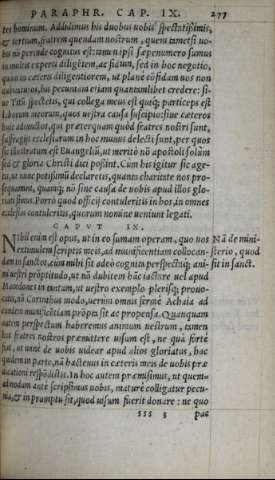 PARAPHR. CAP. IX. 277
tes hominum. Addidimus his duobus uobis spectatißimis,
& tertium, fratrem quendam nostrum, quem tametsi uo-
bis nō perinde cognitus est: tamen ipsi sæpenumero sumus
in multis experti diligētem, ac fidum, sed in hoc negotio,
quàm in cæteris diligentiorem, ut planè cōfidam uos non
his pecuniam etiam quamlibet credere: si-
ue Titū spectetis, qui collega meus est quiq; particeps est
laborum meorum, quos uestra causa suscipio: siue cæteros
huic adiunctos, qui præterquam quòd fratres nostri sunt,
suffragijs ecclesiarum in hoc munus delecti sunt, per quos
sic illustratum est Euangeliū, ut meritò nō apostoli solùm
sed & gloria Christi dici poßint. Cum his igitur sic age-
te, ut nunc potißimū declaretis, quanta charitate nos pro-
sequamini, quamq; nō sine causa de uobis apud illos glo-
riati simus. Porrò quod officij contuleritis in hos, in omnes
ecclesias contuleritis, quorum nomine ueniunt legati.
CAPVT IX.
Nihil enim est opus, ut in eo sumam operam, quo uos
extimulem scriptis meis, ad munificentiam collocan-
dam in sanctos, cùm mihi sit adeò cognita perspectaq; ani-
mi uestri prōptitudo, ut nō dubitem hāc iactare uel apud
Macedones in tantum, ut uestro exemplo plerisq; prouo-
catis, nō Corinthus modò, uerùm omnis fermè Achaia ad
eandem munificētiam propēsa sit ac propensa. Quanquam
autem perspectum haberemus animum uestrum, tamen
hos fratres nostros præmittere uisum est, ne quà fortè
fiat, ut uanè de uobis uidear apud alios gloriatus, hac
quidem in parte, nā hactenus in cæteris meis de uobis præ
dicationi respōdistis. In hoc autem præmisimus, ut quem-
admodum antè scripsimus uobis, maturè colligatur pecu-
nia, & in promptu sit, quod uisum fuerit donare: ne quo
sss 3 pac
Nā de mini-
sterio, quod
fit in sanct.